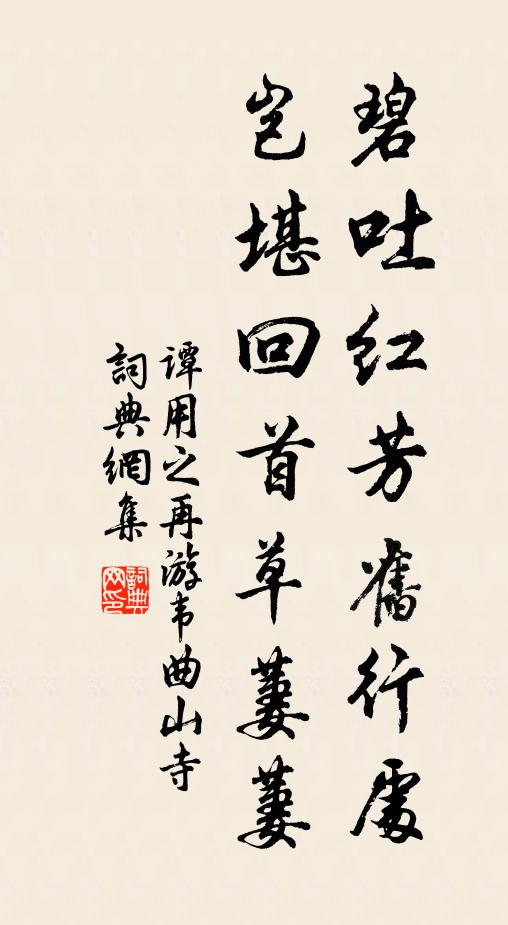 碧吐红芳舊行處
豈堪回首草萋萋
谭用之再游韦曲山寺
詞典網集
詞典网印